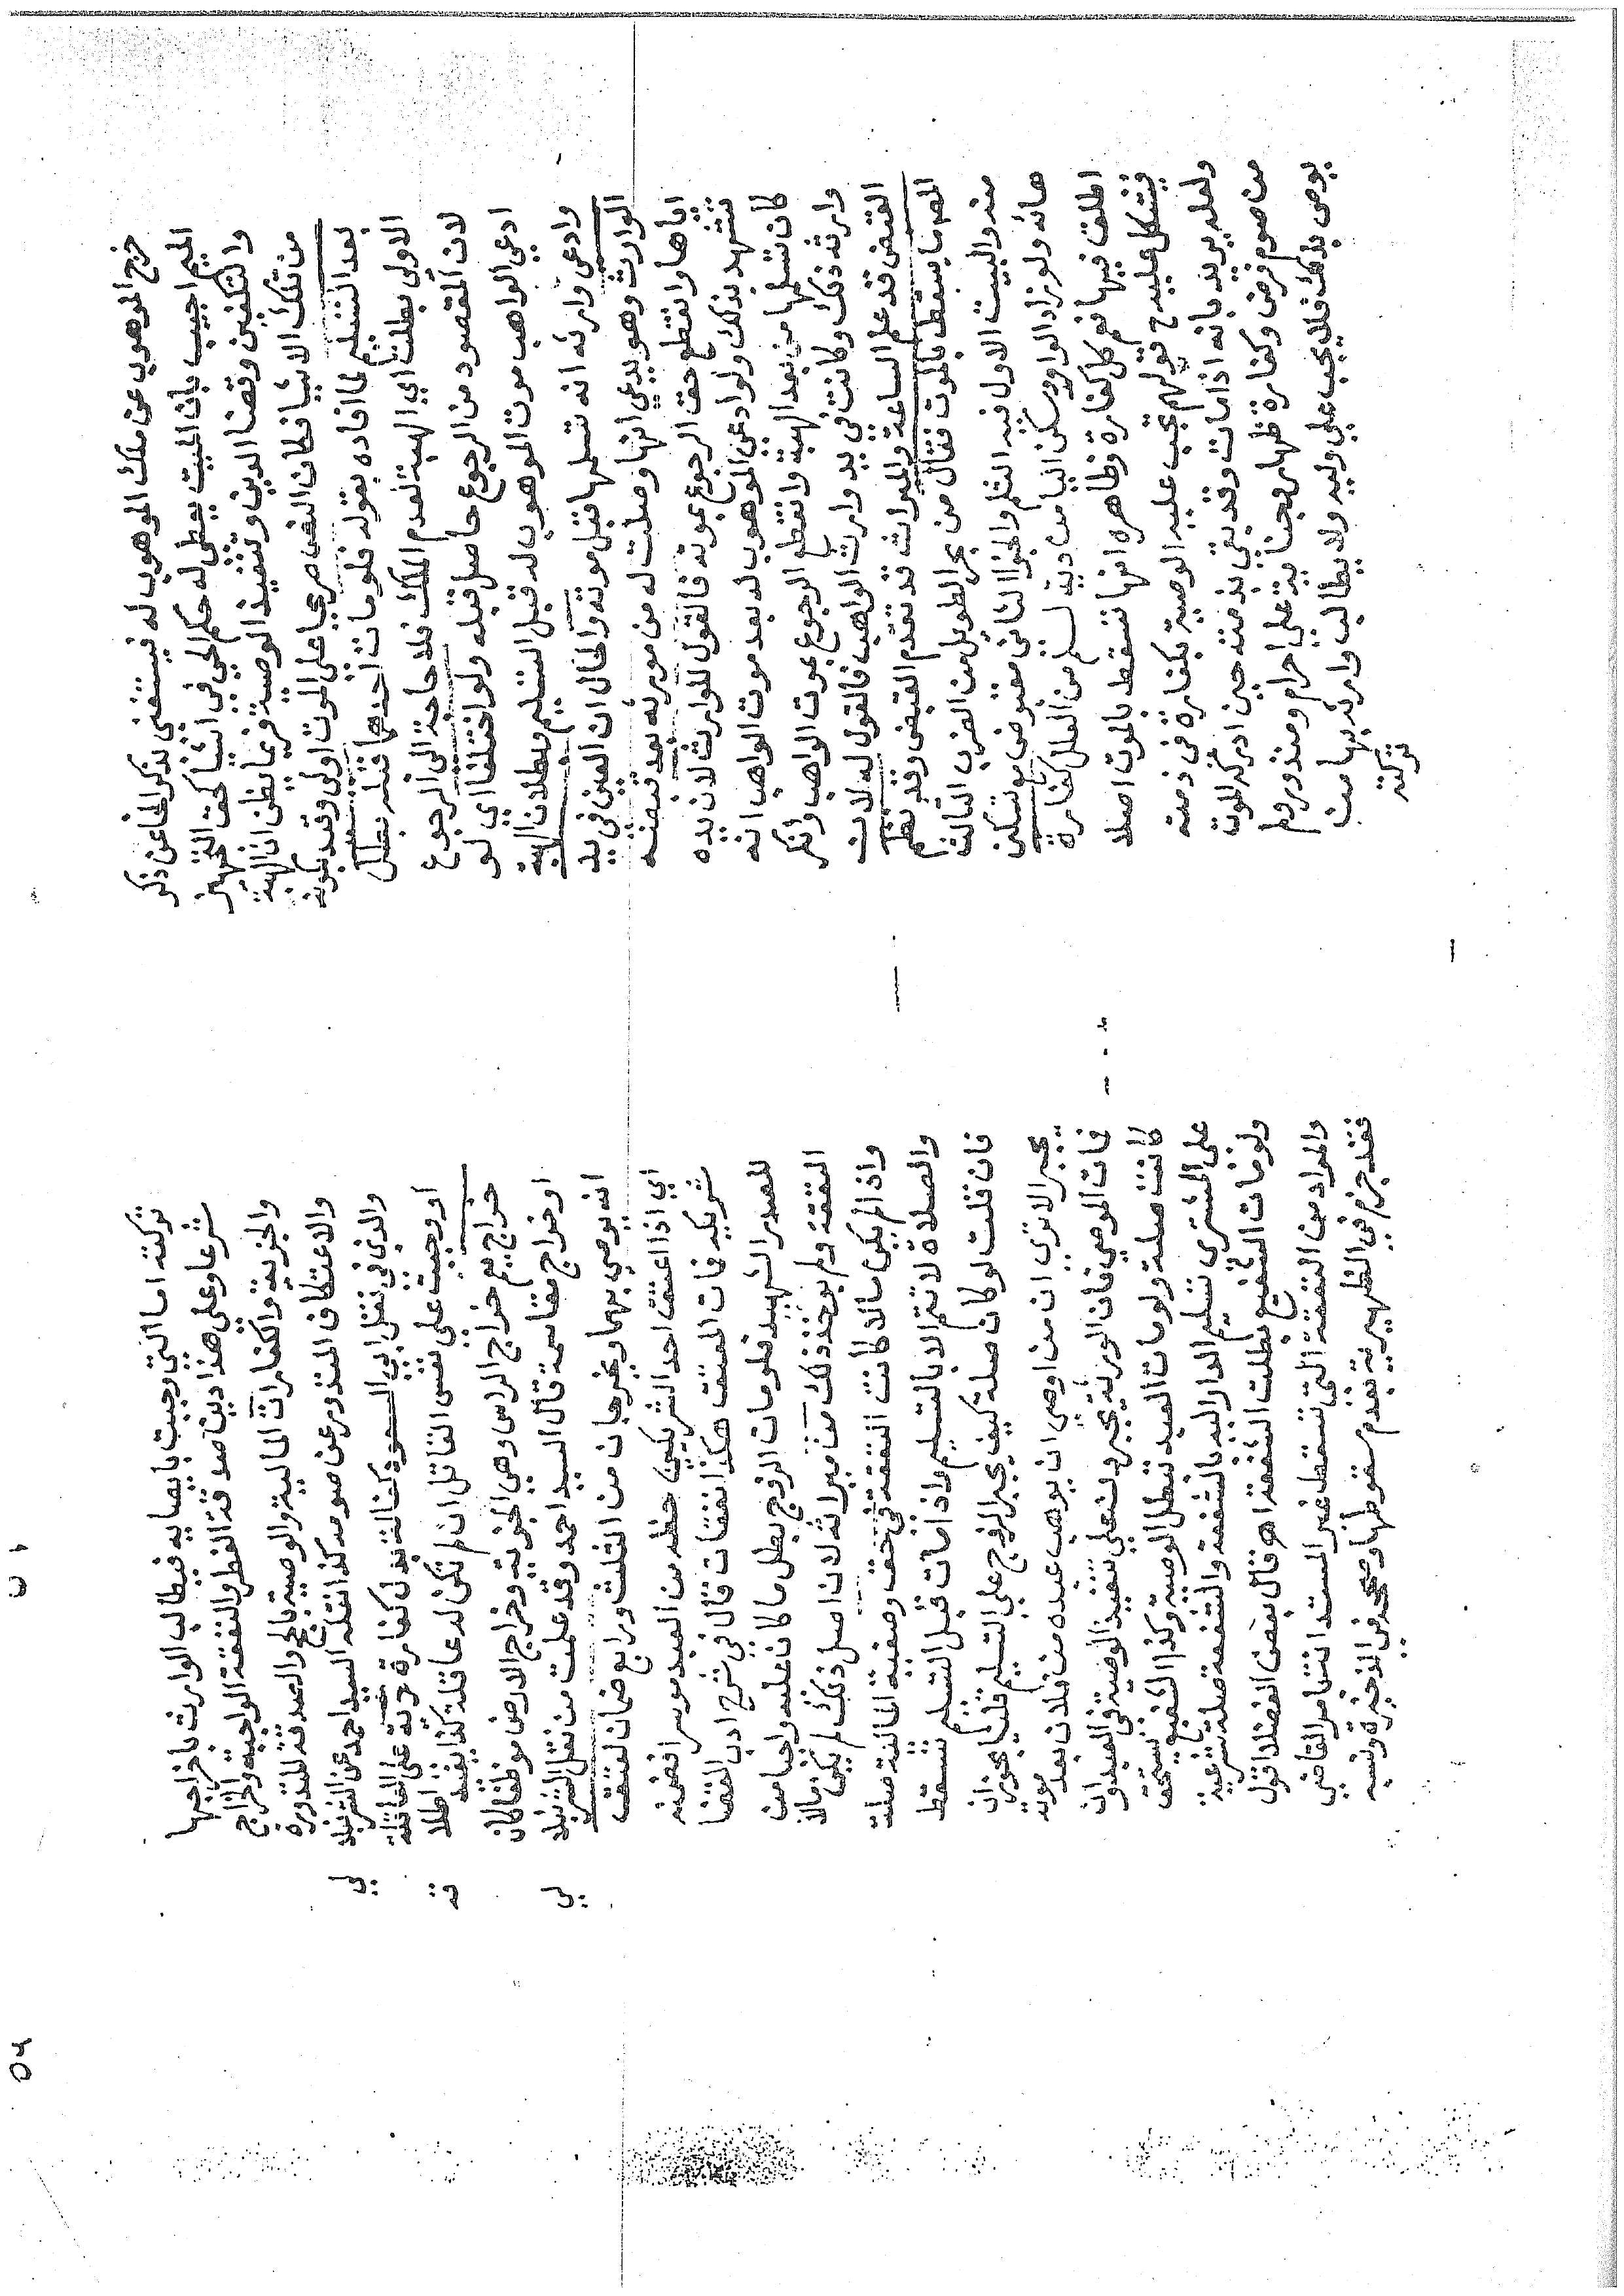 خرج الموهوب عن ملك الموهوب له فيستغني بذكر الخا عن ذكر
الميم اجيب بان الميت يعطى له حكم الحي في اشيا كحق التجهيز
والتكفين وقضا الدين وتنفيذ الوصية فربما يظن ان الهبة
من تلك الاشيا فكان النص صريحا على الموت اولى وقيد بكونه
بعد التسليم لما افاده بقوله فلو مات احدهما قبله بطل
الاولى بطلت اي الهبة لعدم الملك فلا حاجة الى الرجوع
لان المقصود من الرجوع حاصل قبله ولو اختلفا اي لو
ادعى الواهب موت الموهوب له قبل التسليم وبطلان الهبة
وادعى وارثه انه تسلمها قبل موته والحال ان العين في يد
الوارث وهو يدعي انها وصلت له من مورثه بعد قبضته
اياها وانقطع حق الرجوع بموته فالقول للوارث لان يده
تشهد بذلك ولو ادعى الموهوب له بعد موت الواهب انه
كان تسلمها من بعد الهبة وانقطع الرجوع بموت الواهب وانكر
وارثه ذلك وكانت في يد وارث الواهب فالقول له لان
القبض قد علم الساعة والميراث قد تقدم القبض وقد نظم
المص ما يسقط بالموت فقال من بحر الطويل من الضرب الثالث
منه والبيت الاول فيه الثلم والجزا الثاني مقبوض موتسكن
هائه ولو زاد الواو وسكن اليا من دية لسلم من العلل كفارة
اطلق فيها فعم كل كفارة وظاهره انها تسقط بالموت اصلا
فيشكل عليه ح قولهم تجب عليه الوصية بكفارة في ذمته
ولعله يريد بانه اذا مات وقد بقي بذمته حين ادركه الموت
من صوم فرض وكفارة ظهار وجناية على احرام ومنذور ولم
يوص بذلك فلا يجب على وليه ولا يطالب وارثه بها من
تركته
تركته اما التي وجبت بايصايه فيطالب الوارث باخراجها
شرعا وعلى هذا دين صدقة الفطر والنفقة الواجبة والخراج
والجزية والكفارات المالية والوصية بالحج والصدقة المنذورة
والاعتكاف المنذور عن صومه كذا نقله السيد احمد عن الشرنبلا
لي
والذي في نقل ابي السعود كشالته بدل كفارة دية على العاقلة
او وجبت على نفس القاتل ان لم تكن له عاقلة كذا بقيد اطلا
قه
خراج يعم خراج الراس وهي الجزية وخراج الارض موظفا كان
او خراج مقاسمة قال السيد احمد وقد علمت من نقل الشرنبلا
لي
انه يوصي بهما ويخرجان من الثلث ورابع ضمان لعتق
اي اذا اعتق احد الشريكين حظه من العبد موسرا فضمنه
شريكه فات المعتق هكذا نفقات قال في شرح ادب القضا
للصدر الشهيد فلو مات الزوج بطل ما كان عليه واجبا من
النفقة ولم يوخذ ذلك من ميراثه لان اصل ذلك لم يكن مالا
واذا لم يكن مالا كانت النفقة في حق وصفية المالية صلة
والصلاة لا تتم الا بالتسليم واذا مات قبل التسليم تسقط
فان قلت لو كان صلة كيف يجبر الزوج على التسليم قلنا يجوز ان
يجبر الا ترى ان من اوصى ان يوهب عبده من فلان بعد موته
فات الموصي فان الورثة يجبرون على تنفيذ الوصية في العبد وان
كانت صلة ولو مات العبد تبطل الوصية وكذا الشفيع يستحق
على المشتري تسليم الدار اليه بالشفعة والشفعة صلة شرعية
ولو مات الشفيع بطلت الشفعة اهـ وقال بعض الفضلا اقول
والمراد من النفقة التي تسقط غير المستدانة بامر القاضي
فقد جزم في الظهيرية بعدم سقوطها وصححه في الذخيرة ونسبه